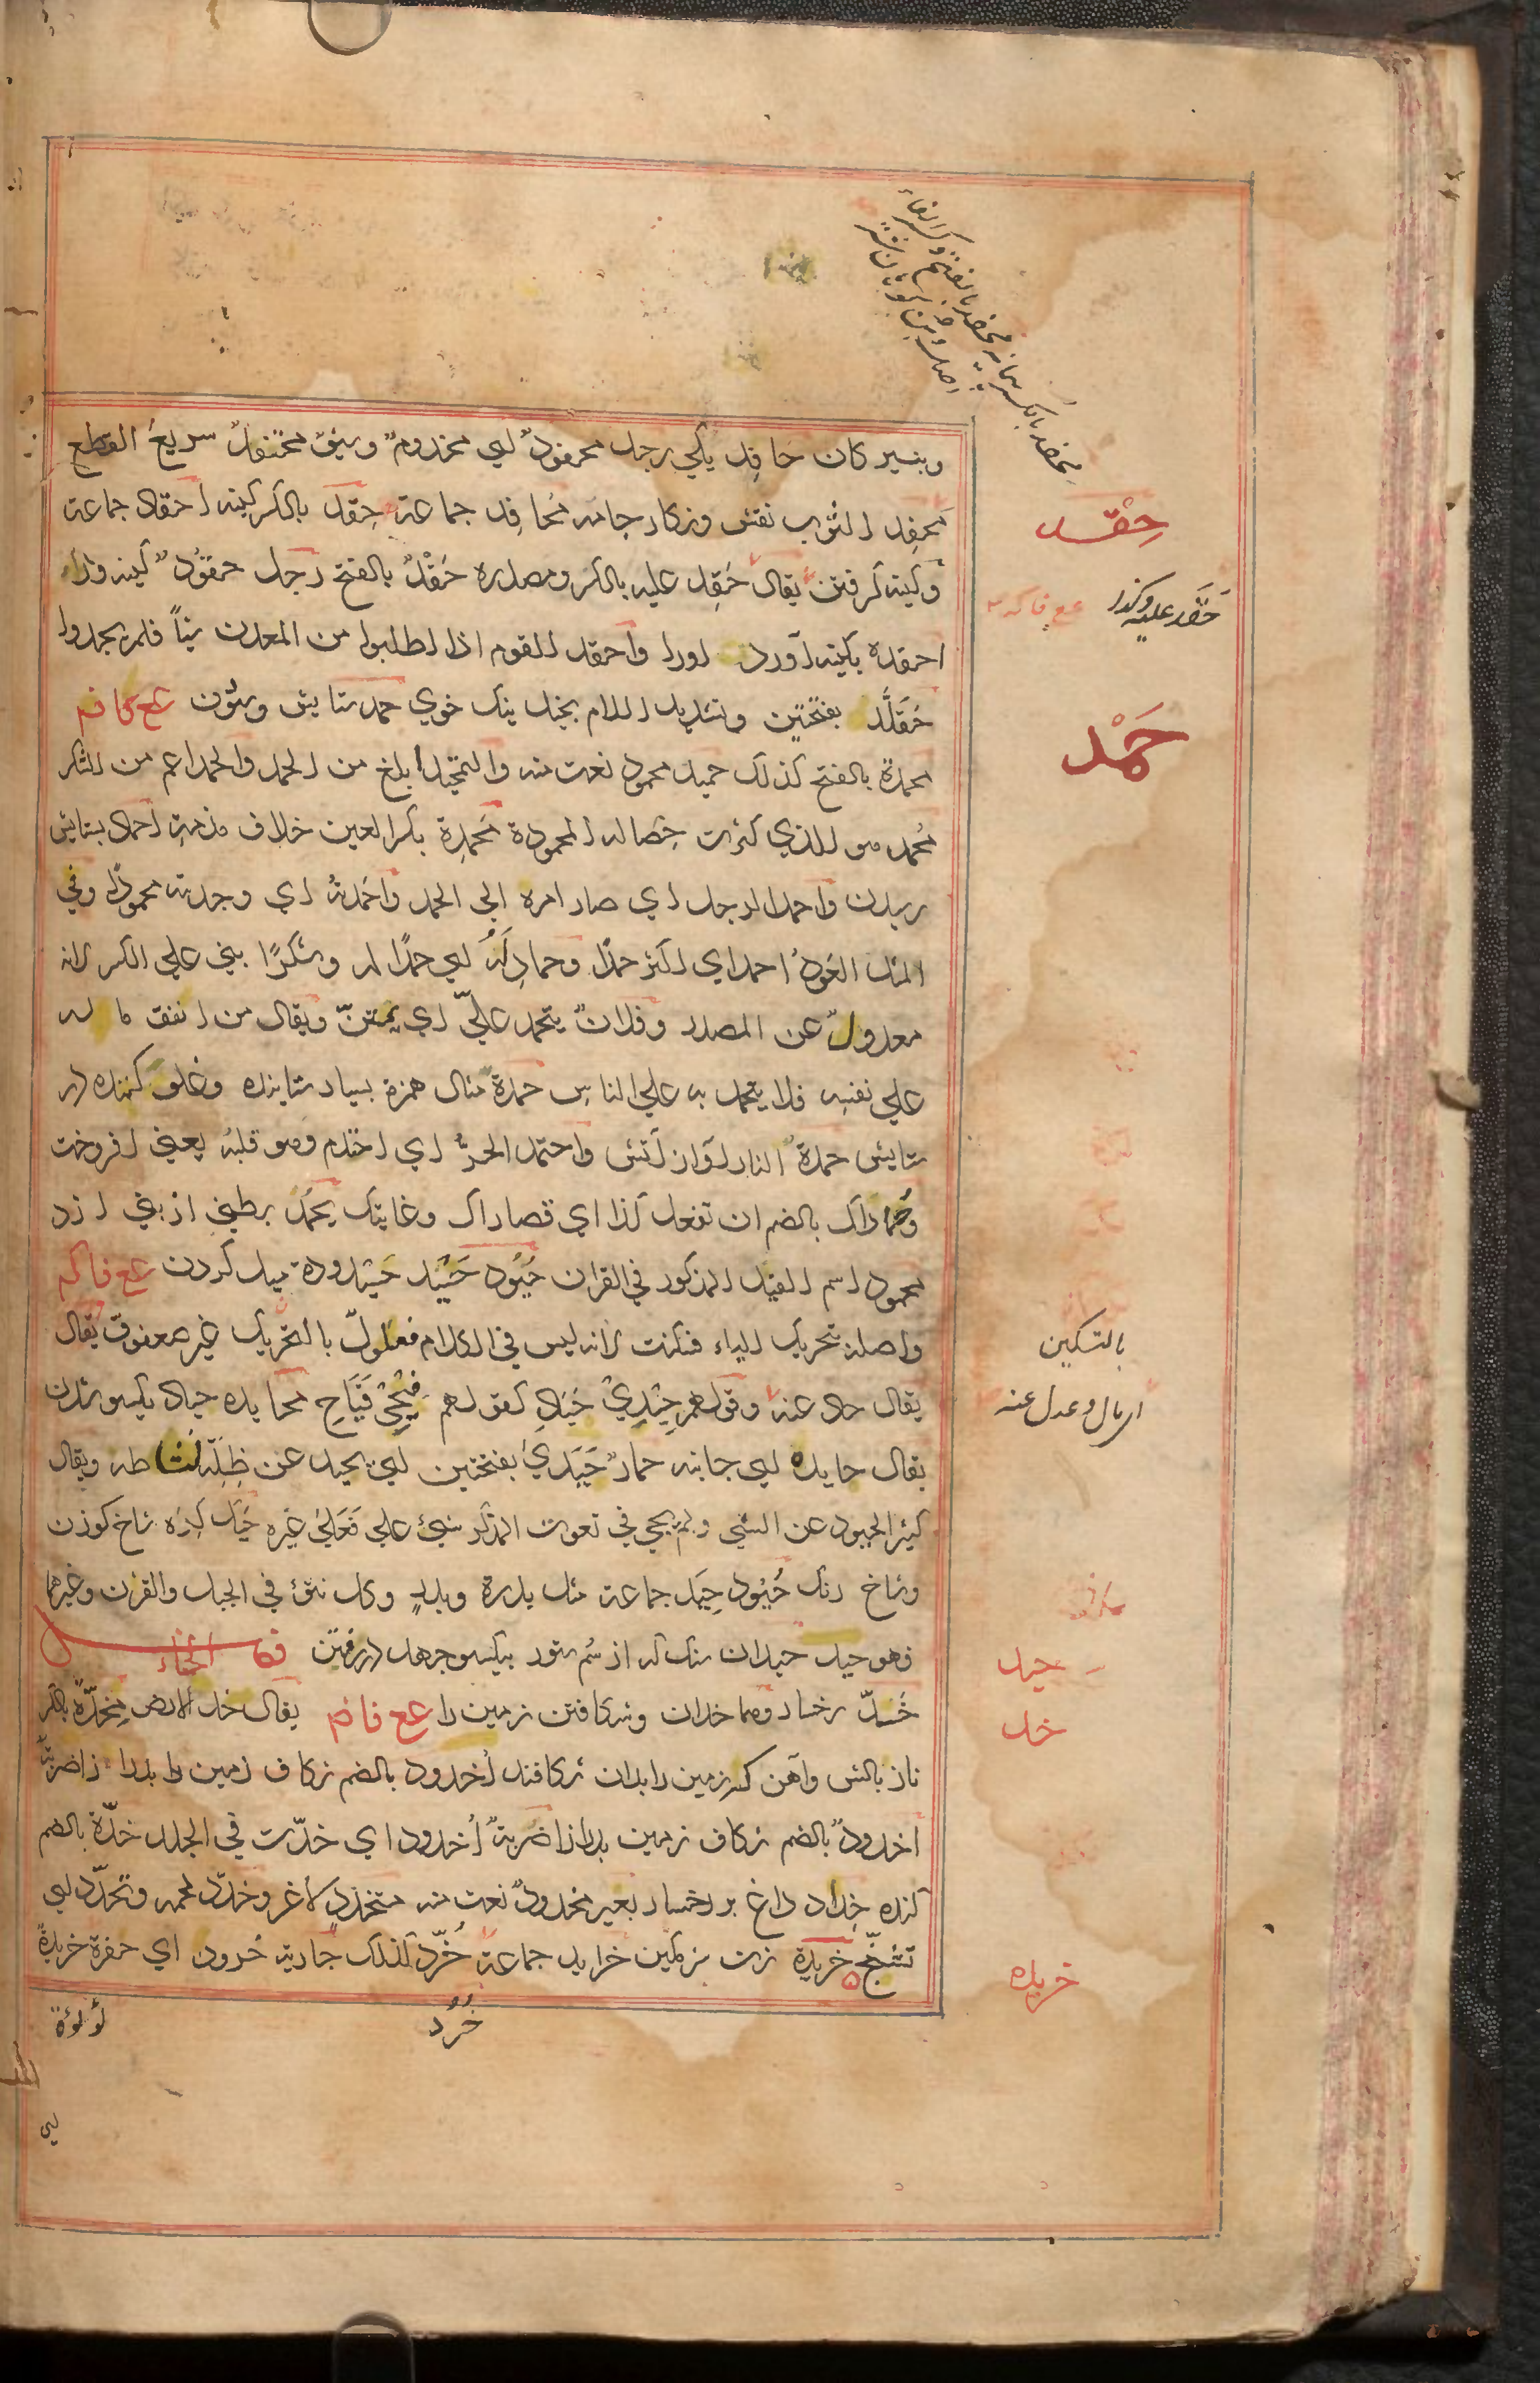 وبنسیر کان حَافِد یکی رجل محفودٌ ای مخدوم وسیف محتفدٌ سریع القطع
مَحفِد الثوب نقش ونکار جامه مَحَافِد جماعة حِقد بالکسر کینه احقاد جماعة
وکینه کرفتن یقال حَقِد علیه بالکسر ومصدره حَقْدٌ بالفتح رجل حقُودٌ کینه ور
احقده بکینه آورد اورا واحقد القوم اذا طلبوا من المعدن شیأً فلم یجدوا
حَقَلَّد بفتحتین وتشدید اللام بخیل نیک خوی حمد ستایش وستودن ع ع فا فم
محمدة بالفتح کذلک حمید محمود نعت منه والتحمید ابلغ من الحمد والحمد اعم من الشکر
مُحمد هو الذی کثرت خِصاله المحمودة مَحمِدة بکسر العین خلاف مذمة احماد بستایش
رسیدن واحمد الرجل ای صار امره الی الحمد واحمدتُه ای وجدته محمودًا وفی
المثل العَودُ احمد ای اکثر حمدًا وحمادِ لَهُ ای حمدًا له وشکرًا بنی علی الکسر لانه
معدولٌ عن المصدر وفلانٌ یتحمد علیّ ای یمتنّ ویقال من انفق ماله
علی نفسه فلا یتحمد به علی الناس حمدة مثال همزة بسیار ستاینده وغلو کننده در
ستایش حمدة النار آواز آتش واحتمد الحرّ ای احتدم وهو قلبه یعنی افروخت
وحُماداک بالضم ان تفعل کذا ای قصاراک وغایتک یحمد بطنی از بنی ازد
محمود اسم الفیل المذکور فی القران حُیُود حَیْد حَیْدودة میل کردن ع ع فا کم
واصله تحریک الیاء فسکنت لانه لیس فی الکلام فعلولٌ بالتحریک غیر صعفوق یقال
یقال حاد عنه وقولهم حِیْدِیْ حَیَادِ کقولهم فِیْحِیْ فَیَاحِ محایده حیاد یکسو شدن
یقال حایده ای جانبه حمارٌ حَیَدیٰ بفتحتین ای یحید عن ظِلّه لنشاطه ویقال
کثیر الحیود عن الشی ولم یجئ فی نعوت المذکر شیئ علی فَعَلیٰ غیره حَید کره شاخ کوزن
وشاخ رنک حُیُود حِیَد جماعة مثل بدرة وبدر وکل نتؤ فی الجبل والقرن وغیرهما
فهو حید حیدان سنک که از سُم ستور بیکسو جهد در رفتن فصل الخاء
خَدّ رخسار وهما خدان وشکافتن زمین را ع ع فا فم یقال خد الارض مِخَدّة بالکسر
ناز بالش وآهن که زمین را بدان شکافند اُخدود بالضم شکاف زمین را بدرازا ضربة
اخدودٌ بالضم شکاف زمین بدرازا ضربة اُخدود ای خدّت فی الجلد خدّة بالضم
کنده خِداد داغ بر رخسار بعیر مخدودٌ نعت منه متخدد لاغر وخدّد لحمه وتخدّد ای
تشنّج خریدة زن شرمکین خراید جماعة خُرّد کذلک جاریة خَرود ای حفرة خریدة
خُرُد
لؤلؤة
حِقْد
حَقَد علیه وکذا ع ع فا کم
حَمْد
بالتسکین
ای مال وعدل عنه
حید
خد
خریده